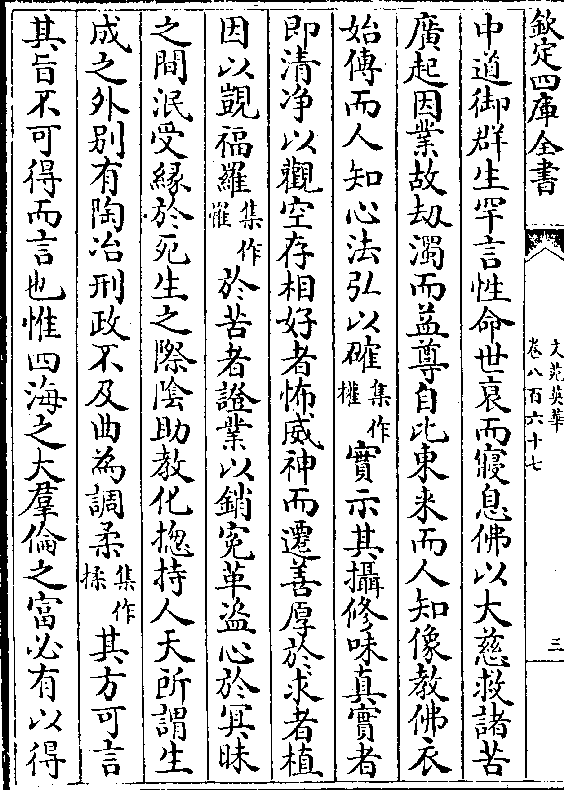 欽定四庫全書
文苑英華
卷八百六十七
三
中道御群生罕言性命世衰而寢息佛以大慈救諸苦
廣起因業故劫濁而益尊自此東来而人知像教佛衣
始傳而人知心法弘以確集作權實示其攝修味真實者
即清净以觀空存相好者怖威神而遷善厚於求者植
因以覬福羅集作罹於苦者證業以銷寃革盗心於冥昧
之間泯受緣於死生之際陰助教化揔持人天所謂生
成之外别有陶冶刑政不及曲為調柔集作揉其方可言
其旨不可得而言也惟四海之大羣倫之富必有以得